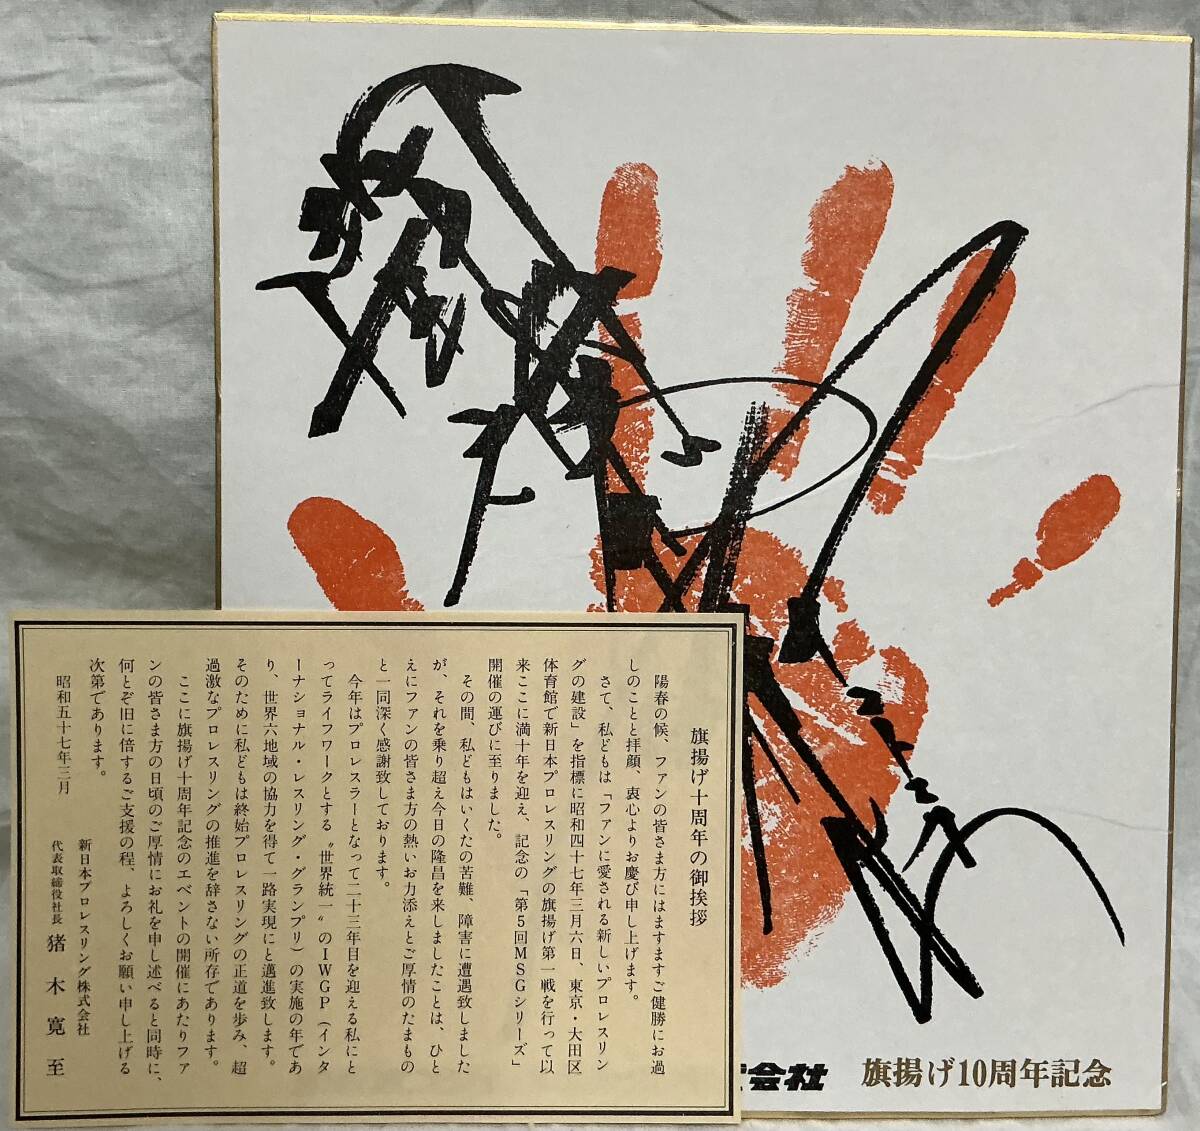 旗揚げ十周年の御挨拶
陽春の候、ファンの皆さま方にはますますご健勝にお過
しのことと拝顔、衷心よりお慶び申し上げます。
さて、私どもは「ファンに愛される新しいプロレスリン
グの建設」を指標に昭和四十七年三月六日、東京・大田区
体育館で新日本プロレスリングの旗揚げ第一戦を行って以
来ここに満十年を迎え、記念の「第5回MSGシリーズ」
開催の運びに至りました。
その間、私どもはいくたの苦難、障害に遭遇致しました
が、それを乗り超え今日の隆昌を来しましたことは、ひと
えにファンの皆さま方の熱いお力添えとご厚情のたまもの
と一同深く感謝致しております。
今年はプロレスラーとなって二十三年目を迎える私にと
ってライフワークとする〝世界統一〟のIWGP(インタ
ーナショナル・レスリング・グランプリ)の実施の年であ
り、世界六地域の協力を得て一路実現にと邁進致します。
そのために私どもは終始プロレスリングの正道を歩み、超
過激なプロレスリングの推進を辞さない所存であります。
ここに旗揚げ十周年記念のエベントの開催にあたりファ
ンの皆さま方の日頃のご厚情にお礼を申し述べると同時に、
何とぞ旧に倍するご支援の程、よろしくお願い申し上げる
次第であります。
昭和五十七年三月
新日本プロレスリング株式会社
代表取締役社長 猪木寛至
会社 旗揚げ10周年記念